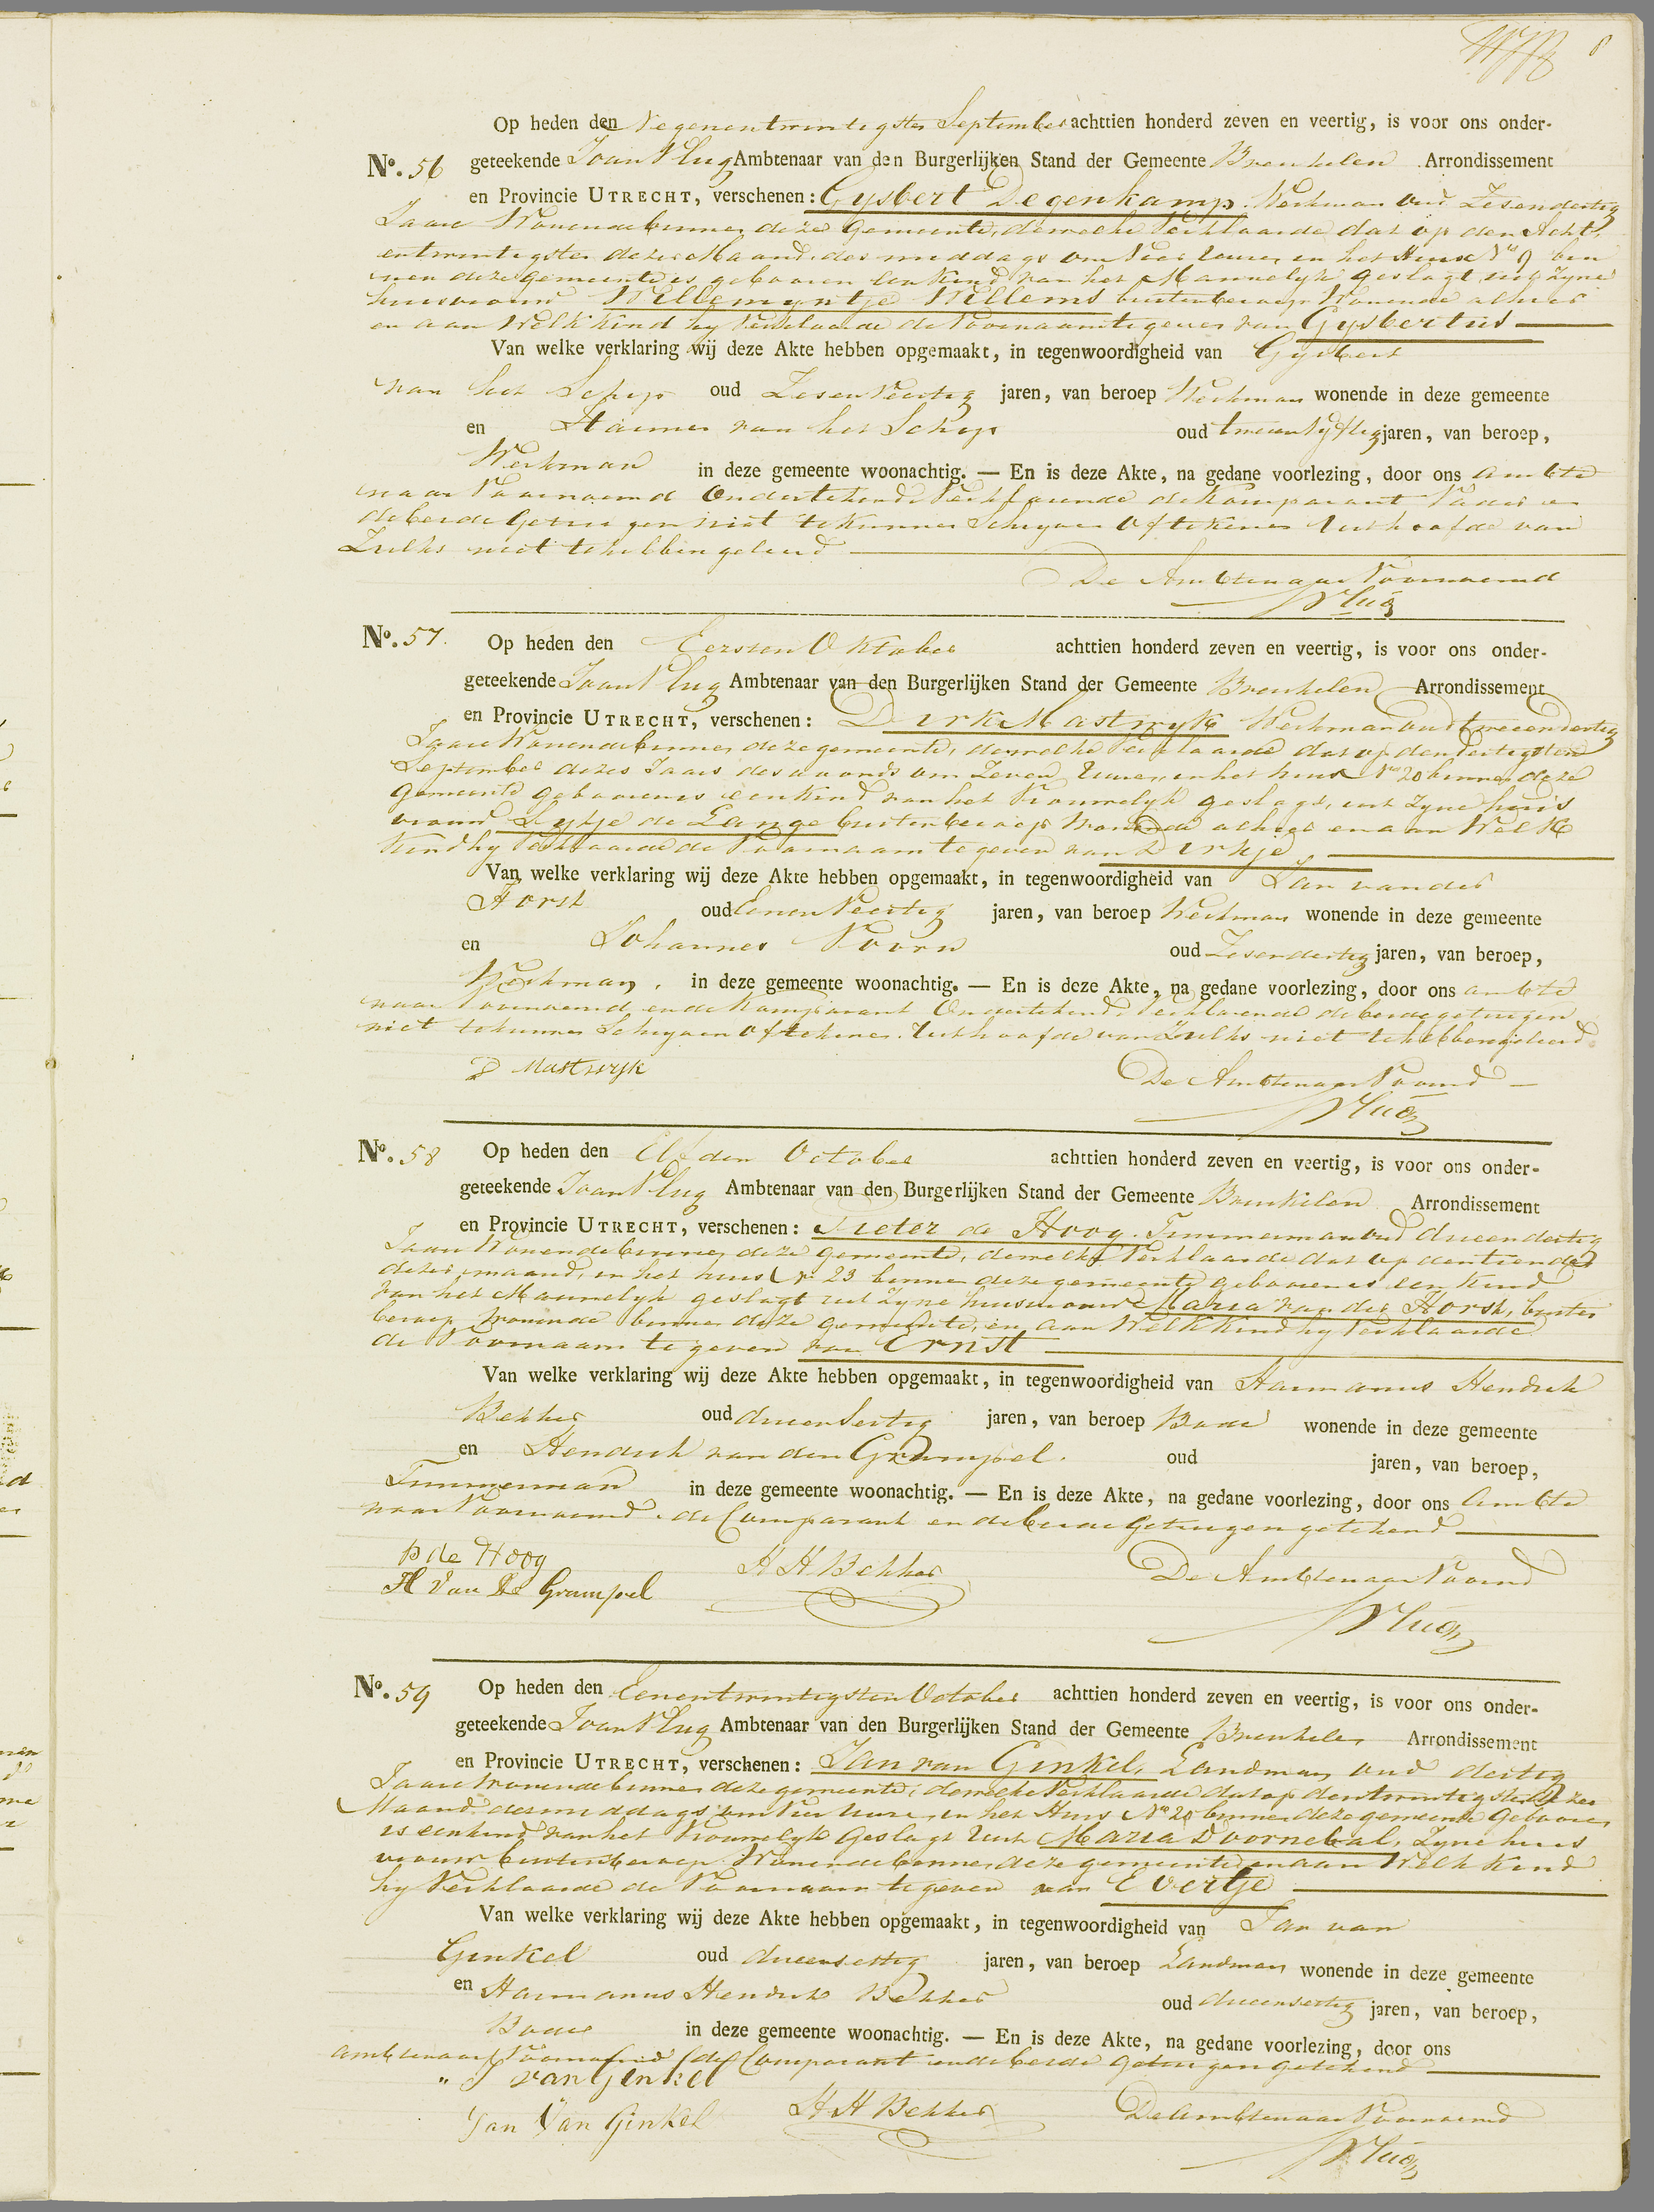 8
Op heden den Negenentwintigsten September achttien honderd zeven en veertig, is voor ons onder-
No. 56 geteekende Joan Plug Ambtenaar van den Burgerlijken Stand der Gemeente Breukelen Arrondissement
en Provincie UTRECHT, verschenen: Gysbert Degenkamp. Werkman oud Zesendertig
Jaare Wonende binnen deze Gemeente, dewelke Verklaarde dat op den Acht
entwintigsten dezer Maand, des middags om Vier Uuren, in het Huis No 9 bin
nen deze gemeente is gebooren een Kind van het Mannelyk geslagt, uit zyne
huisvrouw Willemyntje Willems buiten beroep Wonende alhier
en aan Welk Kind hy Verklaarde de Voornaam te geven van Gysbertus
Van welke verklaring wij deze Akte hebben opgemaakt, in tegenwoordigheid van Gysbert
van het Schip oud Zesenveertig jaren, van beroep Werkman wonende in deze gemeente
en Harmen van het Schip oud tweenvyftig jaren, van beroep,
Werkman in deze gemeente woonachtig. — En is deze Akte, na gedane voorlezing, door ons ambte
naar Voornoemd Ondertekend Verklarende de Komparant Vader en
de beide Getuigen niet te kunnen Schryven of tekenen Uit hoofde van
Zulks niet te hebben geleerd
De Ambtenaar Voornoemd
Plug
No. 57. Op heden den Eersten Oktober achttien honderd zeven en veertig, is voor ons onder-
geteekende Joan Plug Ambtenaar van den Burgerlijken Stand der Gemeente Breukelen Arrondissement
en Provincie UTRECHT, verschenen: Dirk Mastwyk Werkman oud tweeendertig
Jaare Wonende binnen deze gemeente, dewelke Verklaarde dat op den dertigsten
September dezes Jaars des avonds om Zeven Uuren, in het huis No 20 binnen deze
Gemeente gebooren is een Kind van het Vrouwelyk geslagt, uit Zyne huis
vrouw Lytje de Lange buiten beroep Wonende alhier en aan Welk
Kind hy Verklaarde de Voornaam te geven van Dirkje
Van welke verklaring wij deze Akte hebben opgemaakt, in tegenwoordigheid van Jan van der
Horst oud Eenen Veertig jaren, van beroep Werkman wonende in deze gemeente
en Johannes Voorn oud Zesendertig jaren, van beroep,
Werkman, in deze gemeente woonachtig. — En is deze Akte, na gedane voorlezing, door ons ambte
naar Voornoemd en de Komparant Ondertekend, Verklarende de beide getuigen
niet te kunnen Schryven of tekenen. Uit hoofde van Zulks niet te hebben geleerd
D Mastwijk De Ambtenaar Voornd
Plug
No. 58 Op heden den Elfden October achttien honderd zeven en veertig, is voor ons onder-
geteekende Joan Plug Ambtenaar van den Burgerlijken Stand der Gemeente Breukelen Arrondissement
en Provincie UTRECHT, verschenen: Pieter de Hoog. Timmerman oud drieendertig
Jaare Wonende binnen deze gemeente, dewelke Verklaarde dat op den tienden
dezer maand, in het huis No 23 binnen deze gemeente gebooren is een kind
van het Mannelyk geslagt uit Zyne huisvrouw Maria van der Horst, buiten
beroep Wonende binnen deze gemeente, en aan Welk Kind hy Verklaarde
de Voornaam te geven van Ernst
Van welke verklaring wij deze Akte hebben opgemaakt, in tegenwoordigheid van Harmanus Hendrik
Bekker oud drieensestig jaren, van beroep Bode wonende in deze gemeente
en Hendrik van den Grampel. oud jaren, van beroep,
Timmerman in deze gemeente woonachtig. — En is deze Akte, na gedane voorlezing, door ons Ambte
naar Voornoemd. de Comparant en de beide Getuigen getekend
P de Hoog H H Bekker De Ambtenaar Voornd
H Van De Grampel Plug
No. 59 Op heden den Eenentwintigsten October achttien honderd zeven en veertig, is voor ons onder-
geteekende Joan Plug Ambtenaar van den Burgerlijken Stand der Gemeente Breukelen Arrondissement
en Provincie UTRECHT, verschenen: Jan van Ginkel, Landman oud dertig
Jaare Wonende binnen deze gemeente, dewelke Verklaarde dat op den twintigsten Dezer
Maand des middags om Vier Uure, in het Huis No 20 binnen deze gemeente Gebooren
is een kind van het Vrouwelyk Geslagt Uit Maria Doornebal, Zyne huis
vrouw buiten beroep Wonende binnen deze gemeente en aan Welk Kind
hy Verklaarde de Voornaam te geven van Evertje
Van welke verklaring wij deze Akte hebben opgemaakt, in tegenwoordigheid van Jan van
Ginkel oud drieensestig jaren, van beroep Landman wonende in deze gemeente
en Harmanus Hendrik Bekker oud drieensestig jaren, van beroep,
Bode in deze gemeente woonachtig. — En is deze Akte, na gedane voorlezing, door ons
ambtenaar Voornoemd de Comparant en de beide getuigen getekend
J van Ginkel
Jan Van Ginkel H H Bekker De Ambtenaar Voornoemd
Plug